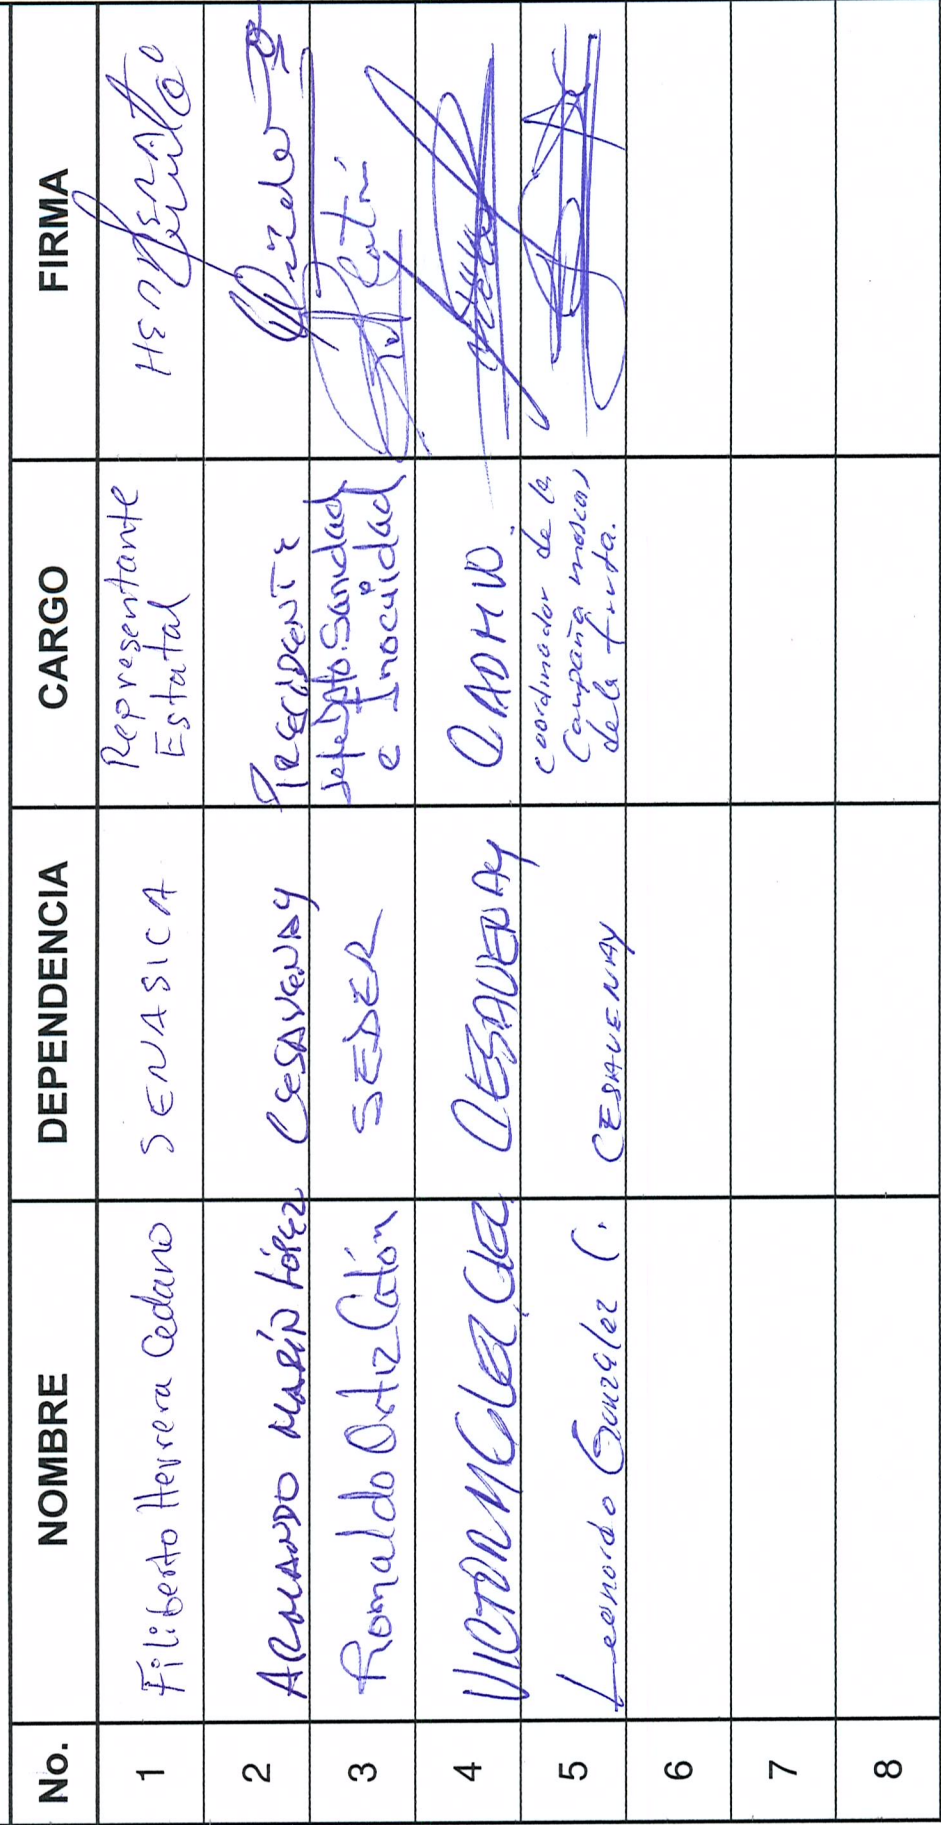 No. NOMBRE DEPENDENCIA CARGO FIRMA
1 Filiberto Herrera Cedano SENASICA Representante
Estatal
2 ARMANDO MARÍN LÓPEZ CESAVENAY PRECIDENTE
3 Romaldo Ortiz Catón SEDER Jefe Dpto. Sanidad
e Inocuidad
4 VICTOR M CESAVENAY
5 Leonardo González C. CESAVENAY Coordinador de la
Campaña moscas
de la fruta.
6
7
8